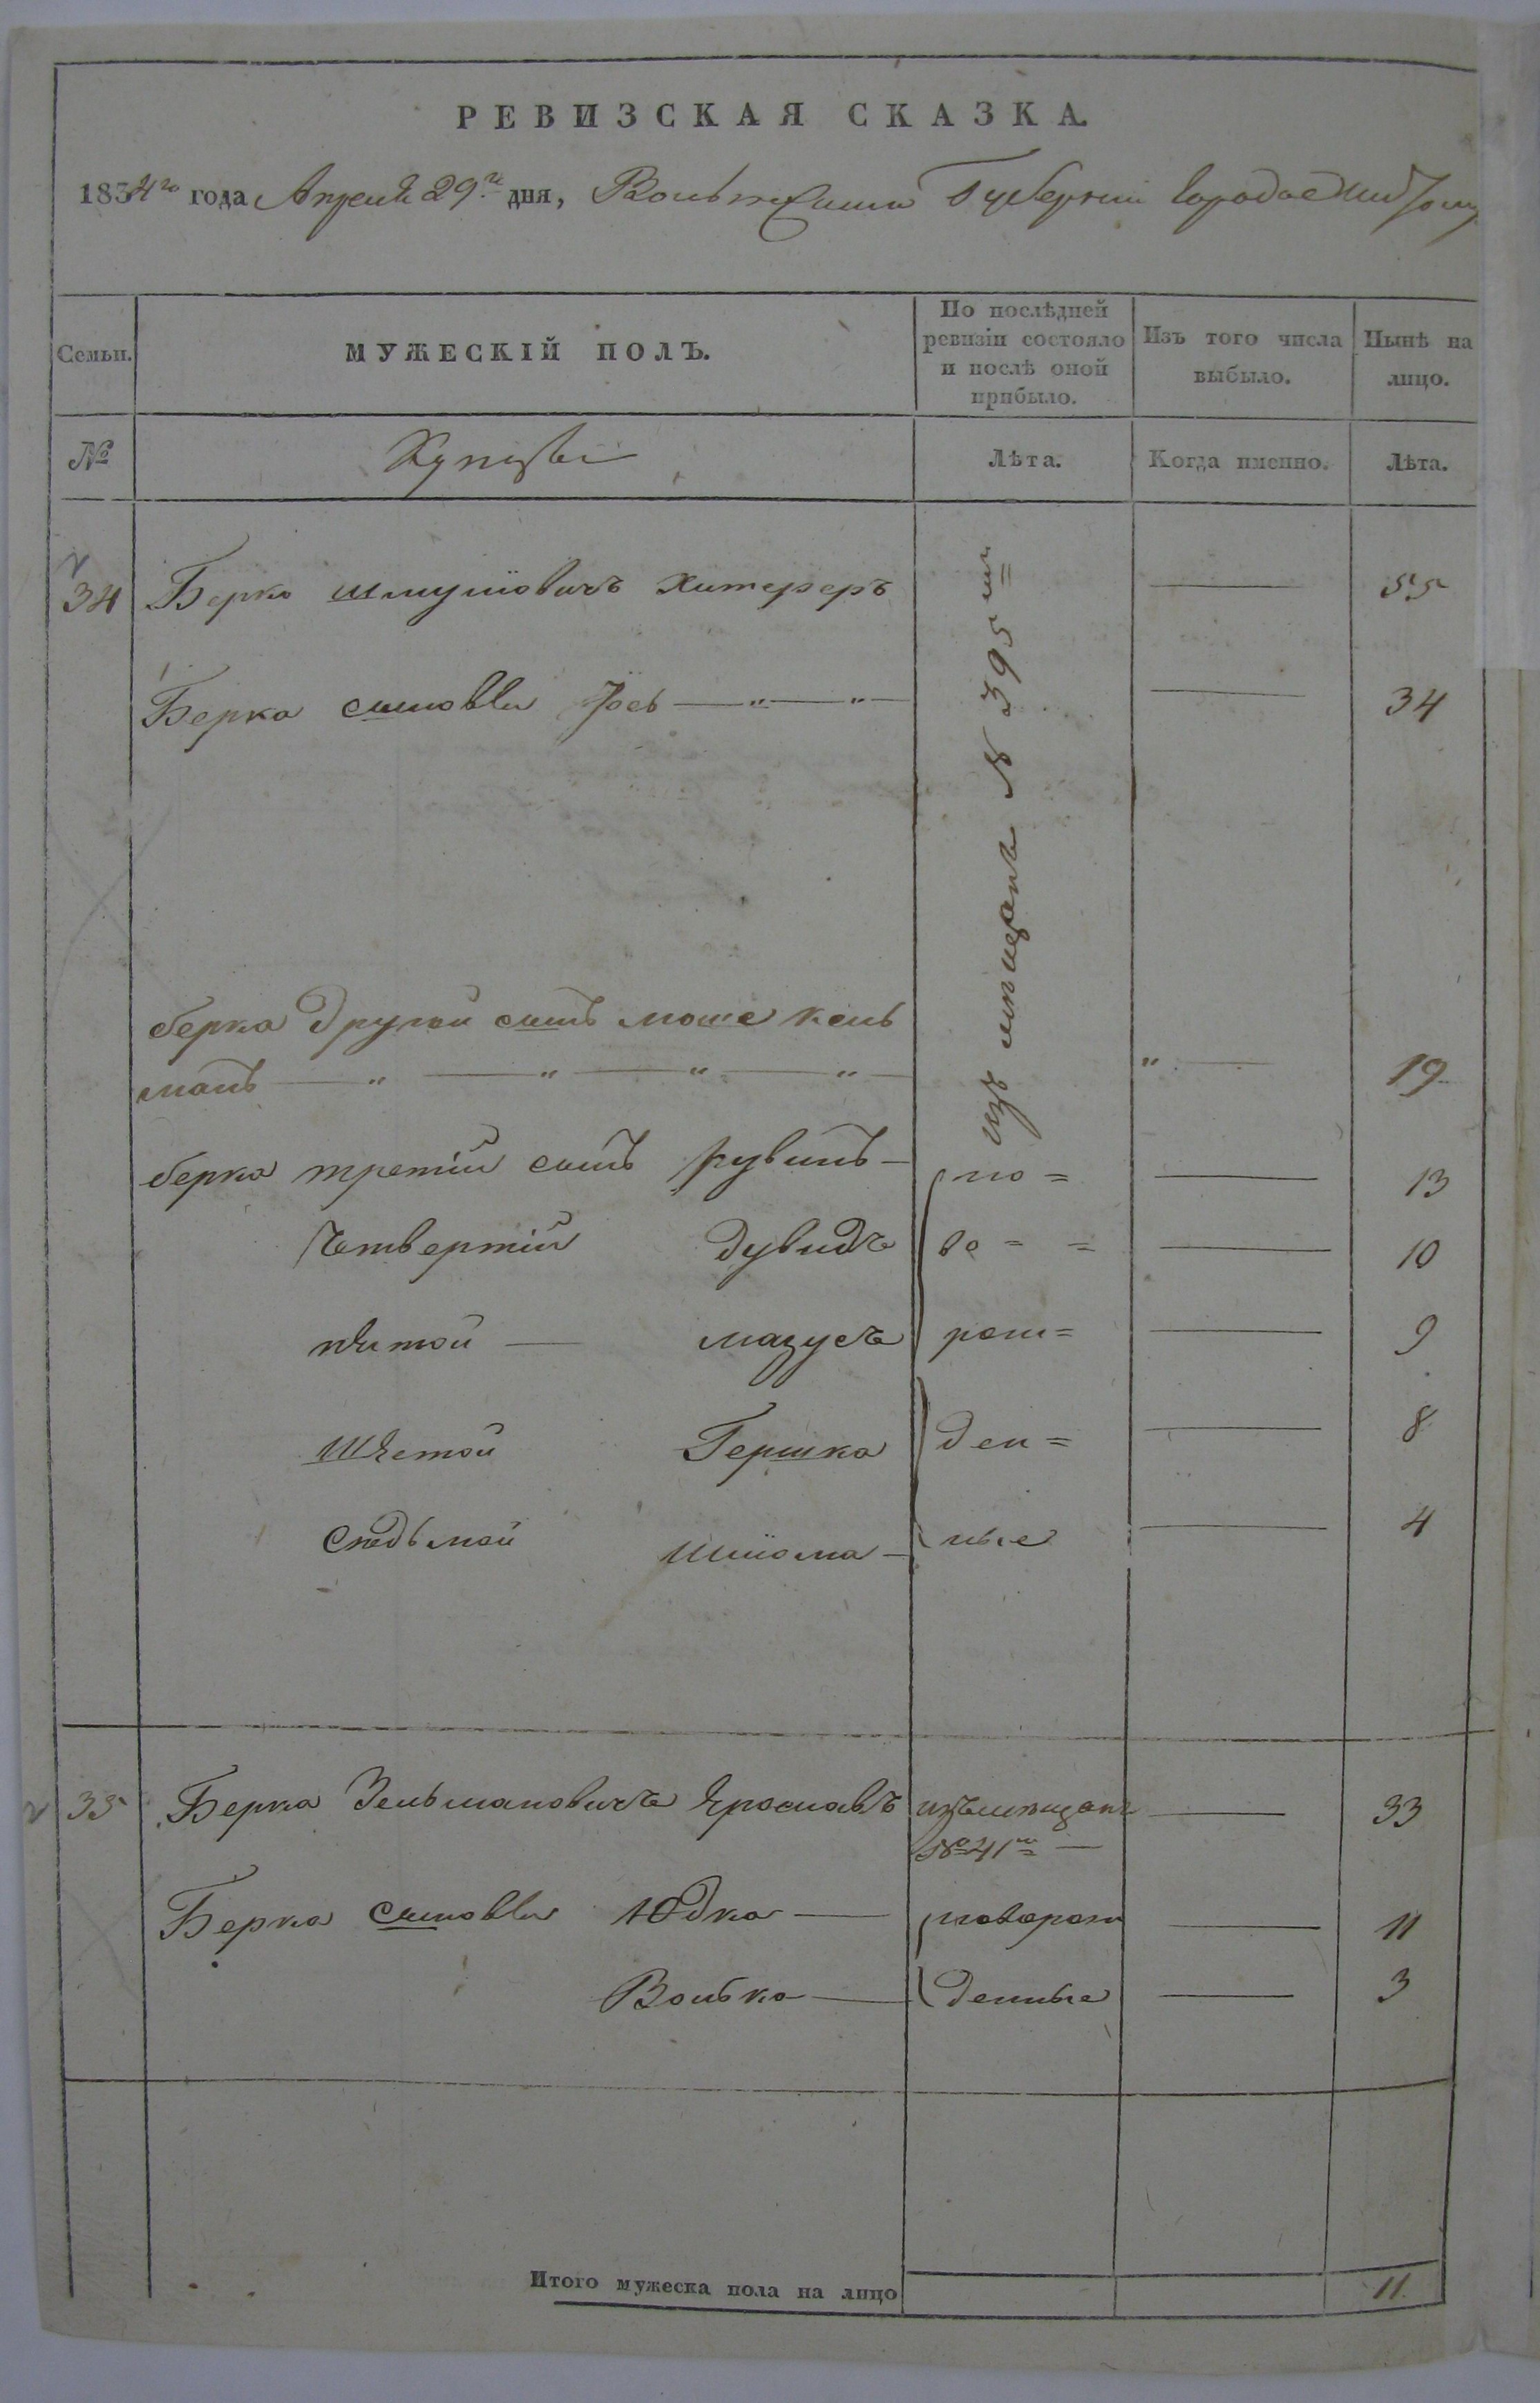 РЕВИЗСКАЯ СКАЗКА.
1834го года Апреля 29го дня, Волынской Губернии города
Семьи.
МУЖЕСКІЙ ПОЛЪ.
По послѣдней ревизіи состояло и послѣ оной прибыло.
Изъ того числа выбыло.
Нынѣ на лицо.
№
Купцы
Лѣта.
Когда именно.
Лѣта.
изъ мещанъ № 395
34 Берко Шмулiовичъ Хитереръ — 55
Берка сыновья Iось — " — " — — 34
берка другой сынъ моше кель
манъ — " — " — " — " — " — 19
берка третiй сынъ рувинъ — но = — 13
Четвертiй дувидъ во = = — 10
пятой — мазусъ рож= — 9
Шестой Гершко ден= — 8
Седьмой шлiома — ные — 4
35 Берка Зельмановичъ Ярославъ изъ мещанъ — 33
№ 41 —
Берка сыновья Юдка — новорож — 11
Волько — денные — 3
Итого мужеска пола на лицо 11